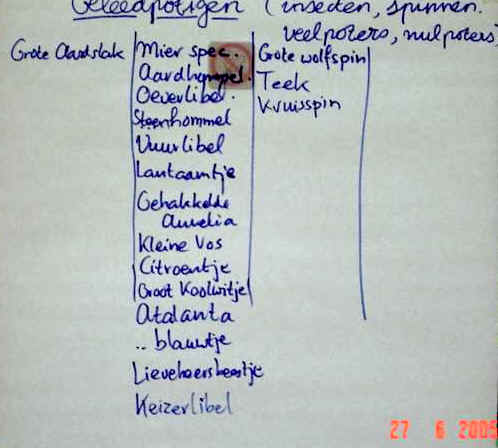 Geleedpotigen (insecten, spinnen.
veelpoters, milpoters
Grote Aardslak
Mier spec.
Aardhommel.
Oeverlibel.
Steenhommel
Vuurlibel
Lantaarntje
Gehakkelde
Aurelia
Kleine Vos
Citroentje
Groot Koolwitje
Atalanta
.. blauwtje
Lieveheersbeestje
Keizerlibel
Grote wolfspin
Teek
Kruisspin
27 6 2005